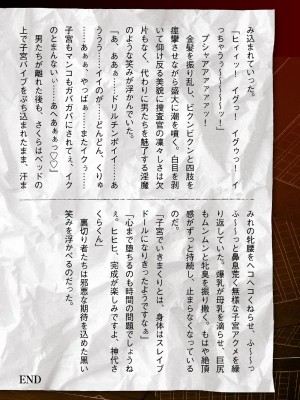 み込まれていった。
「ヒィィッ！　イグっ！　イグゥっ！　イ
っちゃうぅ～～～～～ッ！」
プシャアアアアアアッ！
金髪を振り乱し、ビクンビクンと四肢を
痙攣させながら盛大に潮を噴く。白目を剥
いて仰け反る美貌に捜査官の凛々しさは欠
片もなく、代わりに男たちを魅了する淫魔
のような笑みが浮かんでいた。
「あ　ああぁ……ドリルチンポイイ……あ
ううう……イイのが……どんどん、くりゅ
……あぁぁ、やっぱぁ……またイクぅ……
子宮もマンコもガバガバにされてぇ、イク
のとまんなぃぃ……あへあぁぁっ♡♡」
男たちが離れた後も、さくらはベッドの
上で子宮バイブをぶち込まれたまま、汗ま
みれの牝腰をヘコヘコくねらせ、ふ～～っ
ふ～～っと鼻息荒く無様な子宮アクメを繰
り返していた。爆乳が母乳を滴らせ、巨尻
もムンムンと牝臭を振り撒く。もはや絶頂
感がずっと持続し、止まらなくなっている
のだ。
「子宮でいきまくりとは、身体はスレイブ
ドールになりきったようですなぁ」
「心まで堕ちるのも時間の問題でしょうね
ぇ。ヒヒヒ、完成が楽しみですよ、神代さ
くらくん」
裏切り者たちは邪悪な期待を込めた黒い
笑みを浮かべるのだった。
END